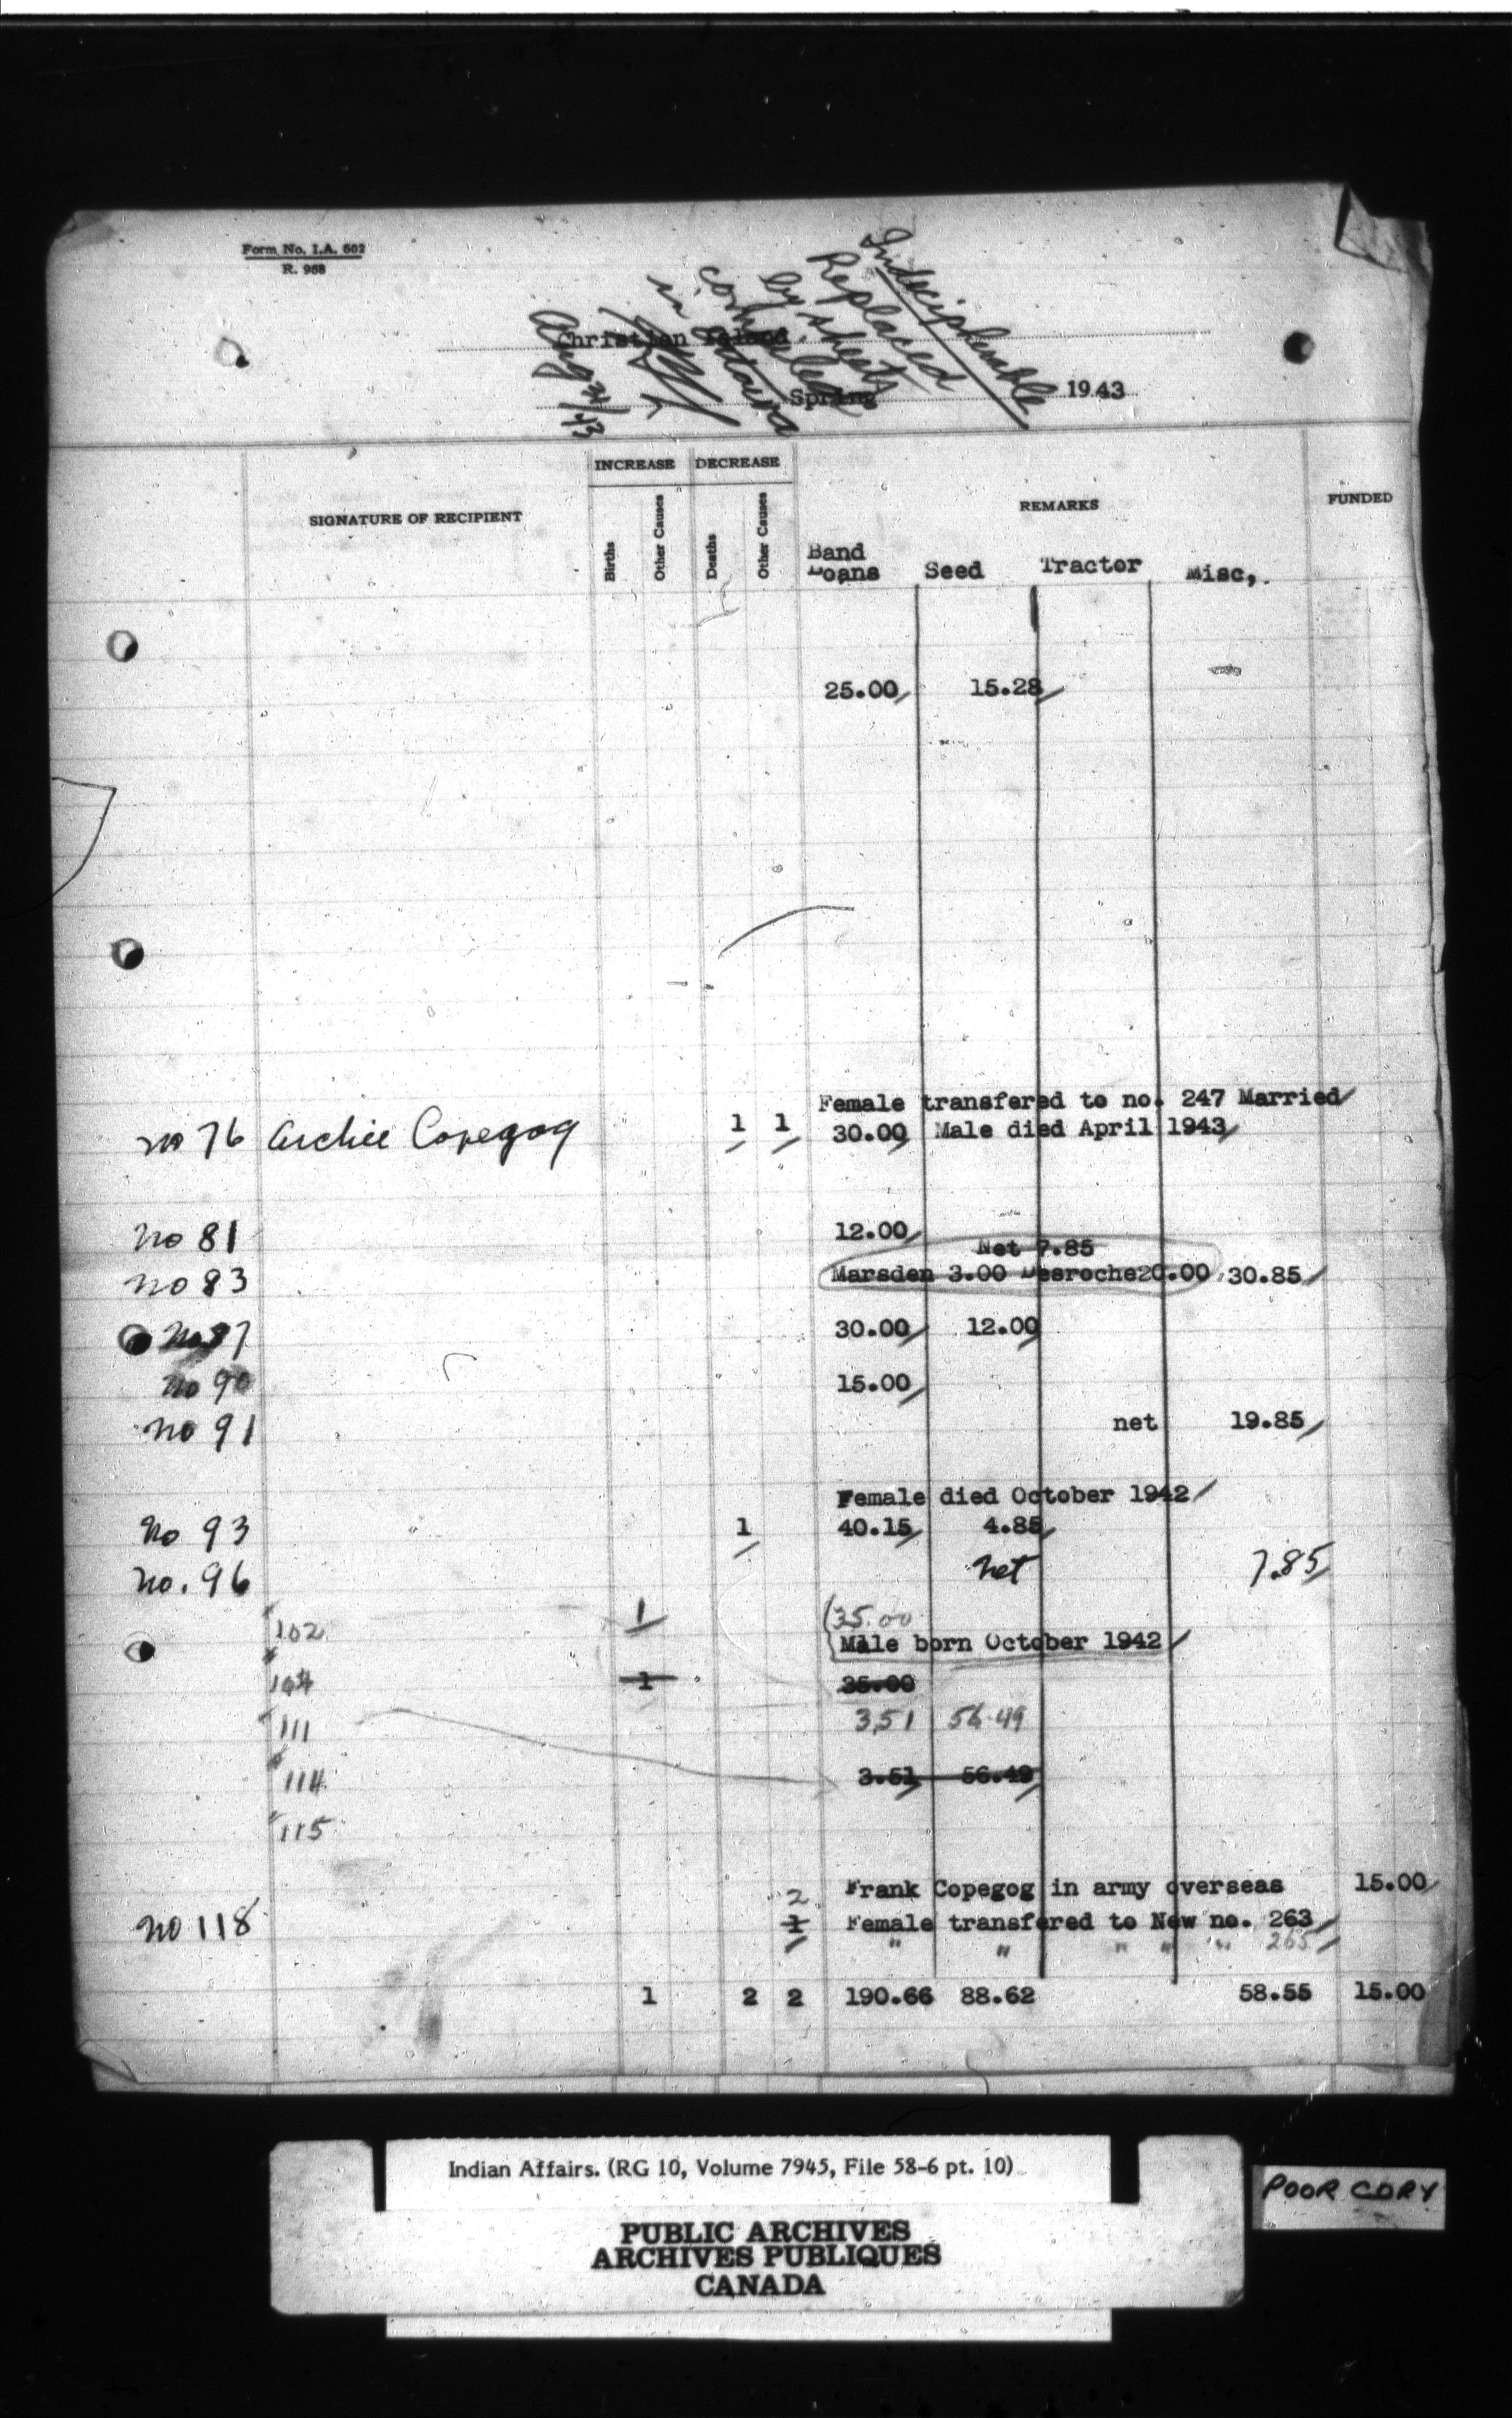 Form No. I.A. 602
R. 968
Indecipherable
Replaced
by sheets
compiled
in Ottawa
Aug 31/43
Christian Island.
Spring 1943
INCREASE DECREASE
SIGNATURE OF RECIPIENT Births Other Causes Deaths Other Causes REMARKS FUNDED
Band
Loans Seed Tractor Misc,.
25.00 15.28
Female transfered to no. 247 Married
no 76 Archie Copegog 1 1 30.00 Male died April 1943
no 81 12.00
Net 7.85
no 83 Marsden 3.00 Desroche20.00 30.85
no 87 30.00 12.00
no 90 15.00
no 91 net 19.85
Female died October 1942
no 93 1 40.15 4.85
no. 96 net 7.85
35.00
" 102 1 Male born October 1942
" 104 1 35.00
" 111 3.51 56.49
" 114 3.51 56.49
" 115
Frank Copegog in army overseas 15.00
2
no 118 1 Female transfered to New no. 263
" " " " " 265
1 2 2 190.66 88.62 58.55 15.00
Indian Affairs. (RG 10, Volume 7945, File 58-6 pt. 10)
PUBLIC ARCHIVES
ARCHIVES PUBLIQUES
CANADA
POOR COPY